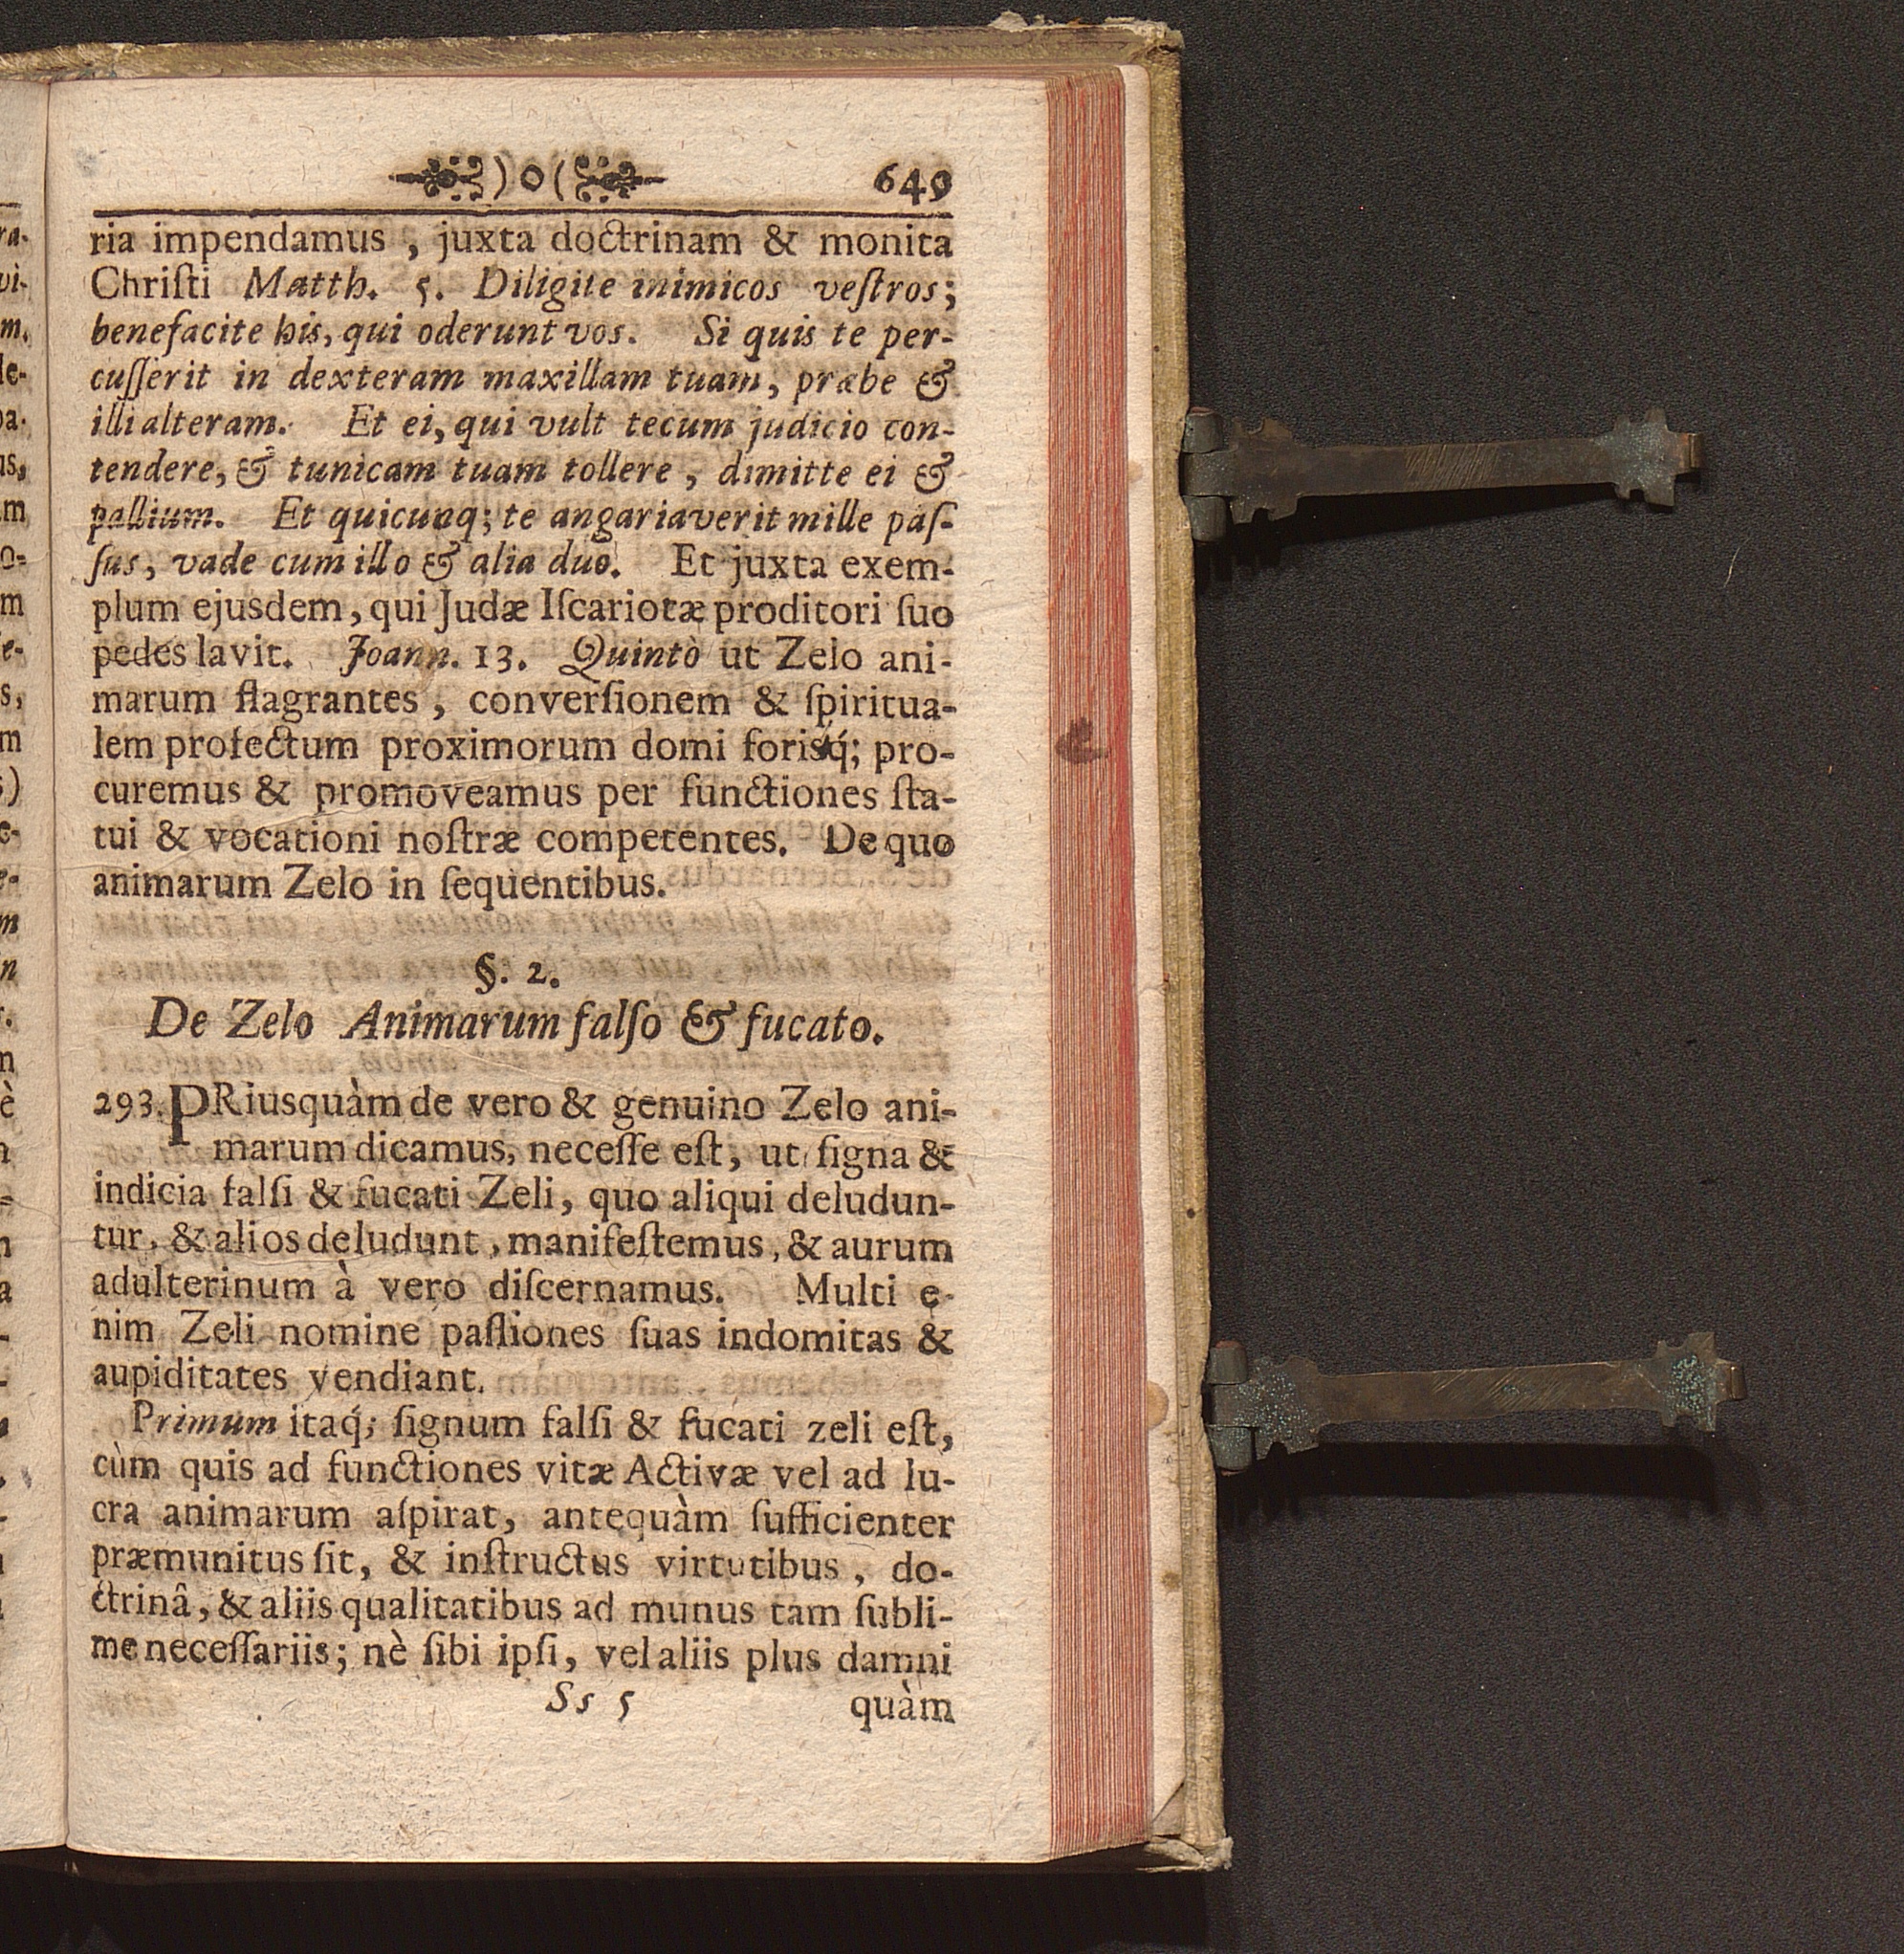 )o( 649
ria impendamus, juxta doctrinam & monita
Chriſti Matth. 5. Diligite inimicos veſtros;
benefacite his, qui oderunt vos. Si quis te per-
cuſſerit in dexteram maxillam tuam, præbe &
illi alteram. Et ei, qui vult tecum judicio con-
tendere, & tunicam tuam tollere, dimitte ei &
pallium. Et quicunq; te angariaverit mille paſ-
ſus, vade cum illo & alia duo. Et juxta exem-
plum ejusdem, qui Judæ Iſcariotæ proditori ſuo
pedes lavit. Joann. 13. Quintò ut Zelo ani-
marum flagrantes, converſionem & ſpiritua-
lem profectum proximorum domi forisq́; pro-
curemus & promoveamus per functiones ſta-
tui & vocationi noſtræ competentes. De quo
animarum Zelo in ſequentibus.
§. 2.
De Zelo Animarum falſo & fucato.
293. PRiusquàm de vero & genuino Zelo ani-
marum dicamus, neceſſe eſt, ut ſigna &
indicia falſi & fucati Zeli, quo aliqui deludun-
tur, & alios deludunt, manifeſtemus, & aurum
adulterinum à vero diſcernamus. Multi e-
nim Zeli nomine paſſiones ſuas indomitas &
aupiditates vendiant.
Primum itaq́; ſignum falſi & fucati zeli eſt,
cùm quis ad functiones vitæ Activæ vel ad lu-
cra animarum aſpirat, antequàm ſufficienter
præmunitus ſit, & inſtructus virtutibus, do-
ctrinâ, & aliis qualitatibus ad munus tam ſubli-
me neceſſariis; nè ſibi ipſi, vel aliis plus damni
Ss 5 quàm